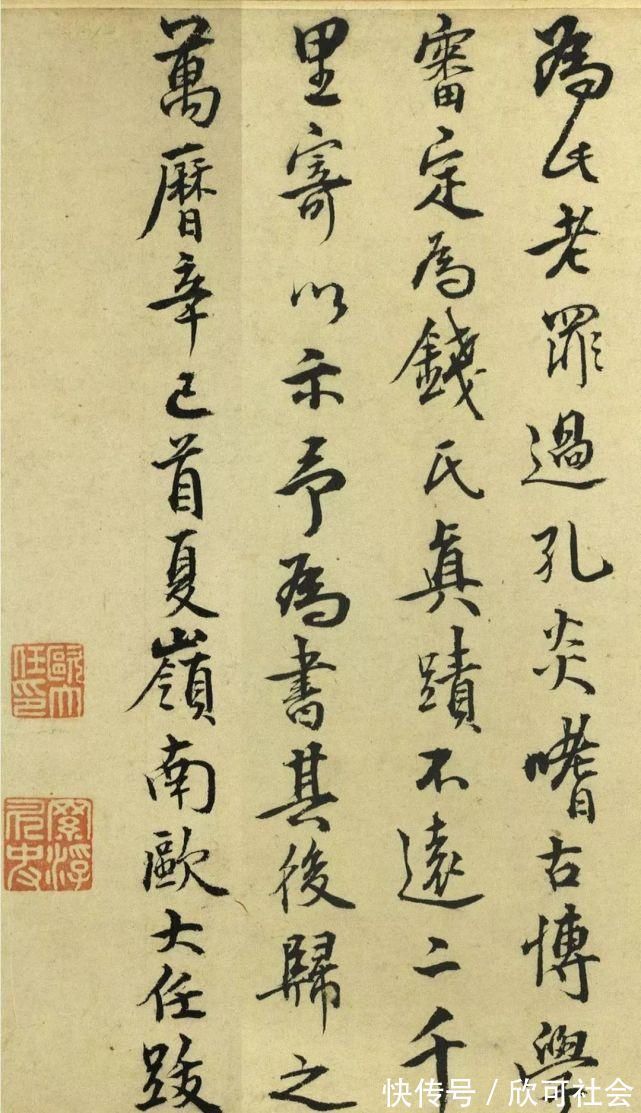 為此老罪過孔炎嗜古愽學
審定為錢氏眞蹟不遠二千
里寄以示予為書其後歸之
萬曆辛巳首夏嶺南歐大任跋
歐大任印
快传号 / 欣可社会